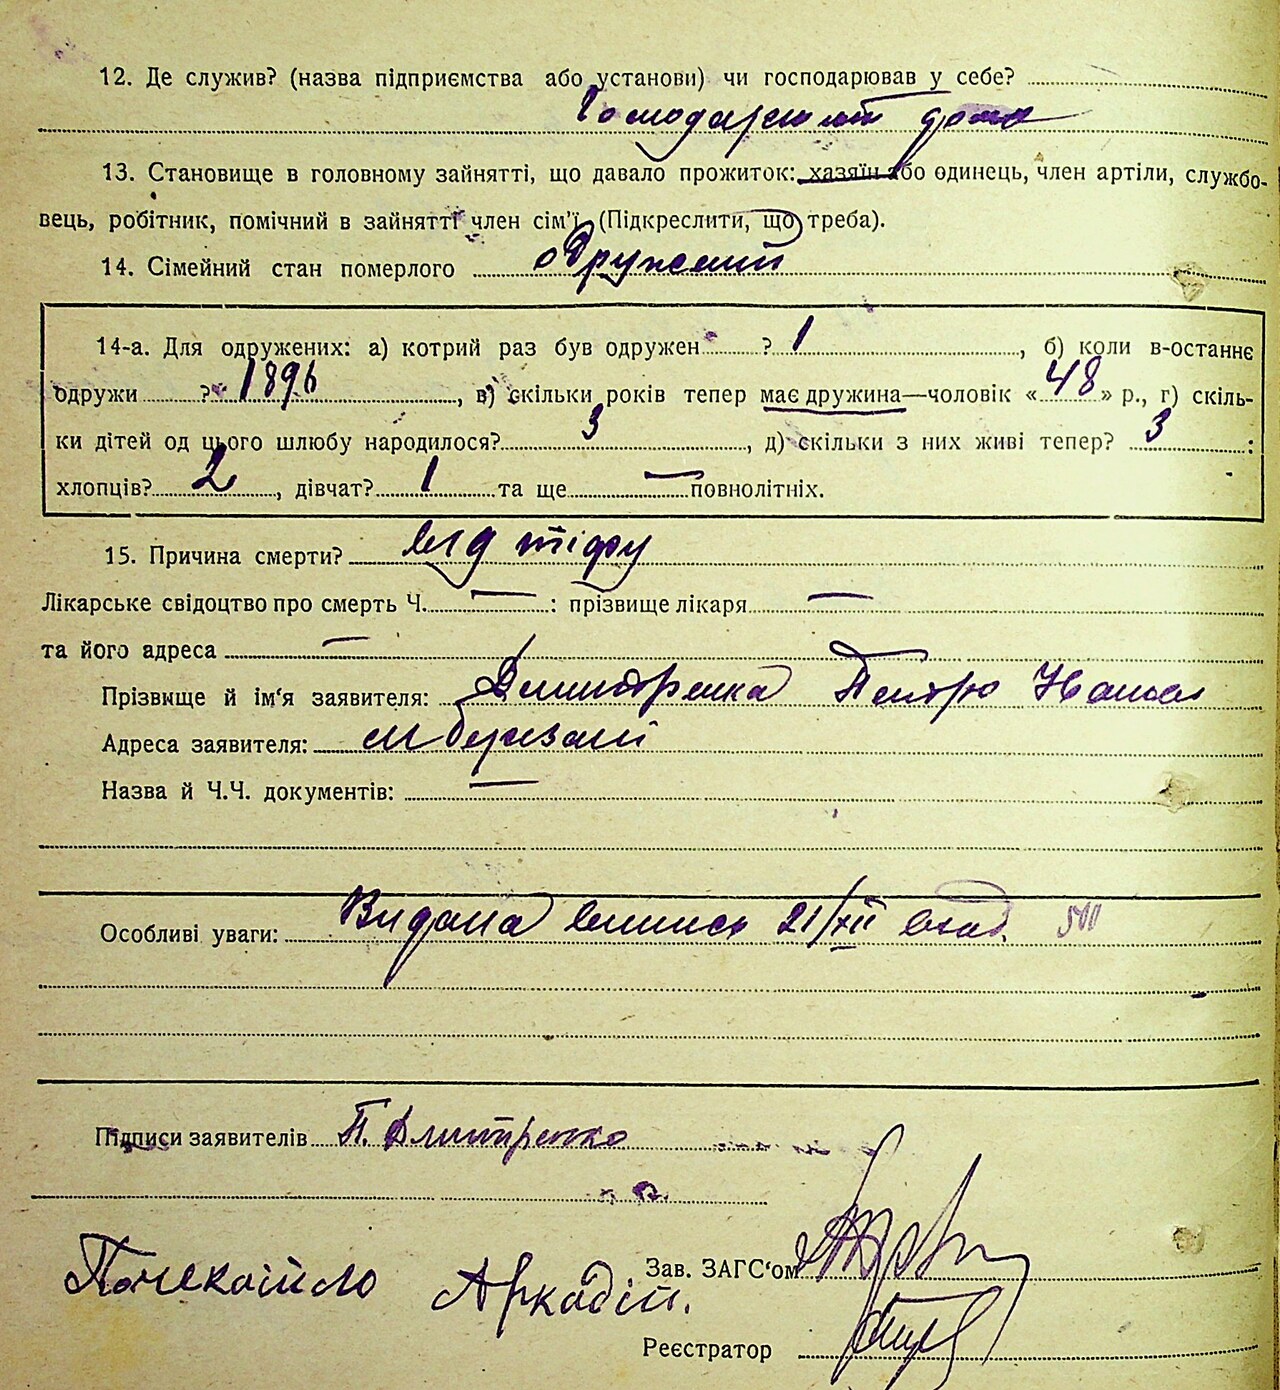 12. Де служив? (назва підприємства або установи) чи господарював у себе?
Господарював дома
13. Становище в головному зайнятті, що давало прожиток: хазяїн або одинець, член артіли, службо-
вець, робітник, помічний в зайнятті член сім'ї (Підкреслити, що треба).
14. Сімейний стан померлого одружений
14-а. Для одружених: а) котрий раз був одружен ? 1, б) коли в-останнє
одружи ? 1896, в) скільки років тепер має дружина—чоловік «48» р., г) скіль-
ки дітей од цього шлюбу народилося? 3, д) скільки з них живі тепер? 3:
хлопців? 2, дівчат? 1 та ще — повнолітніх.
15. Причина смерти? від тіфу
Лікарське свідоцтво про смерть Ч. — : прізвище лікаря —
та його адреса —
Прізвище й ім'я заявителя: Дмитренка Петро Іванов
Адреса заявителя: м Березані
Назва й Ч.Ч. документів: —
Особливі уваги: Видана випись 21/XII
Підписи заявителів П. Дмитренко
Зав. ЗАГС'ом
Почекайло Аркадій.
Реєстратор